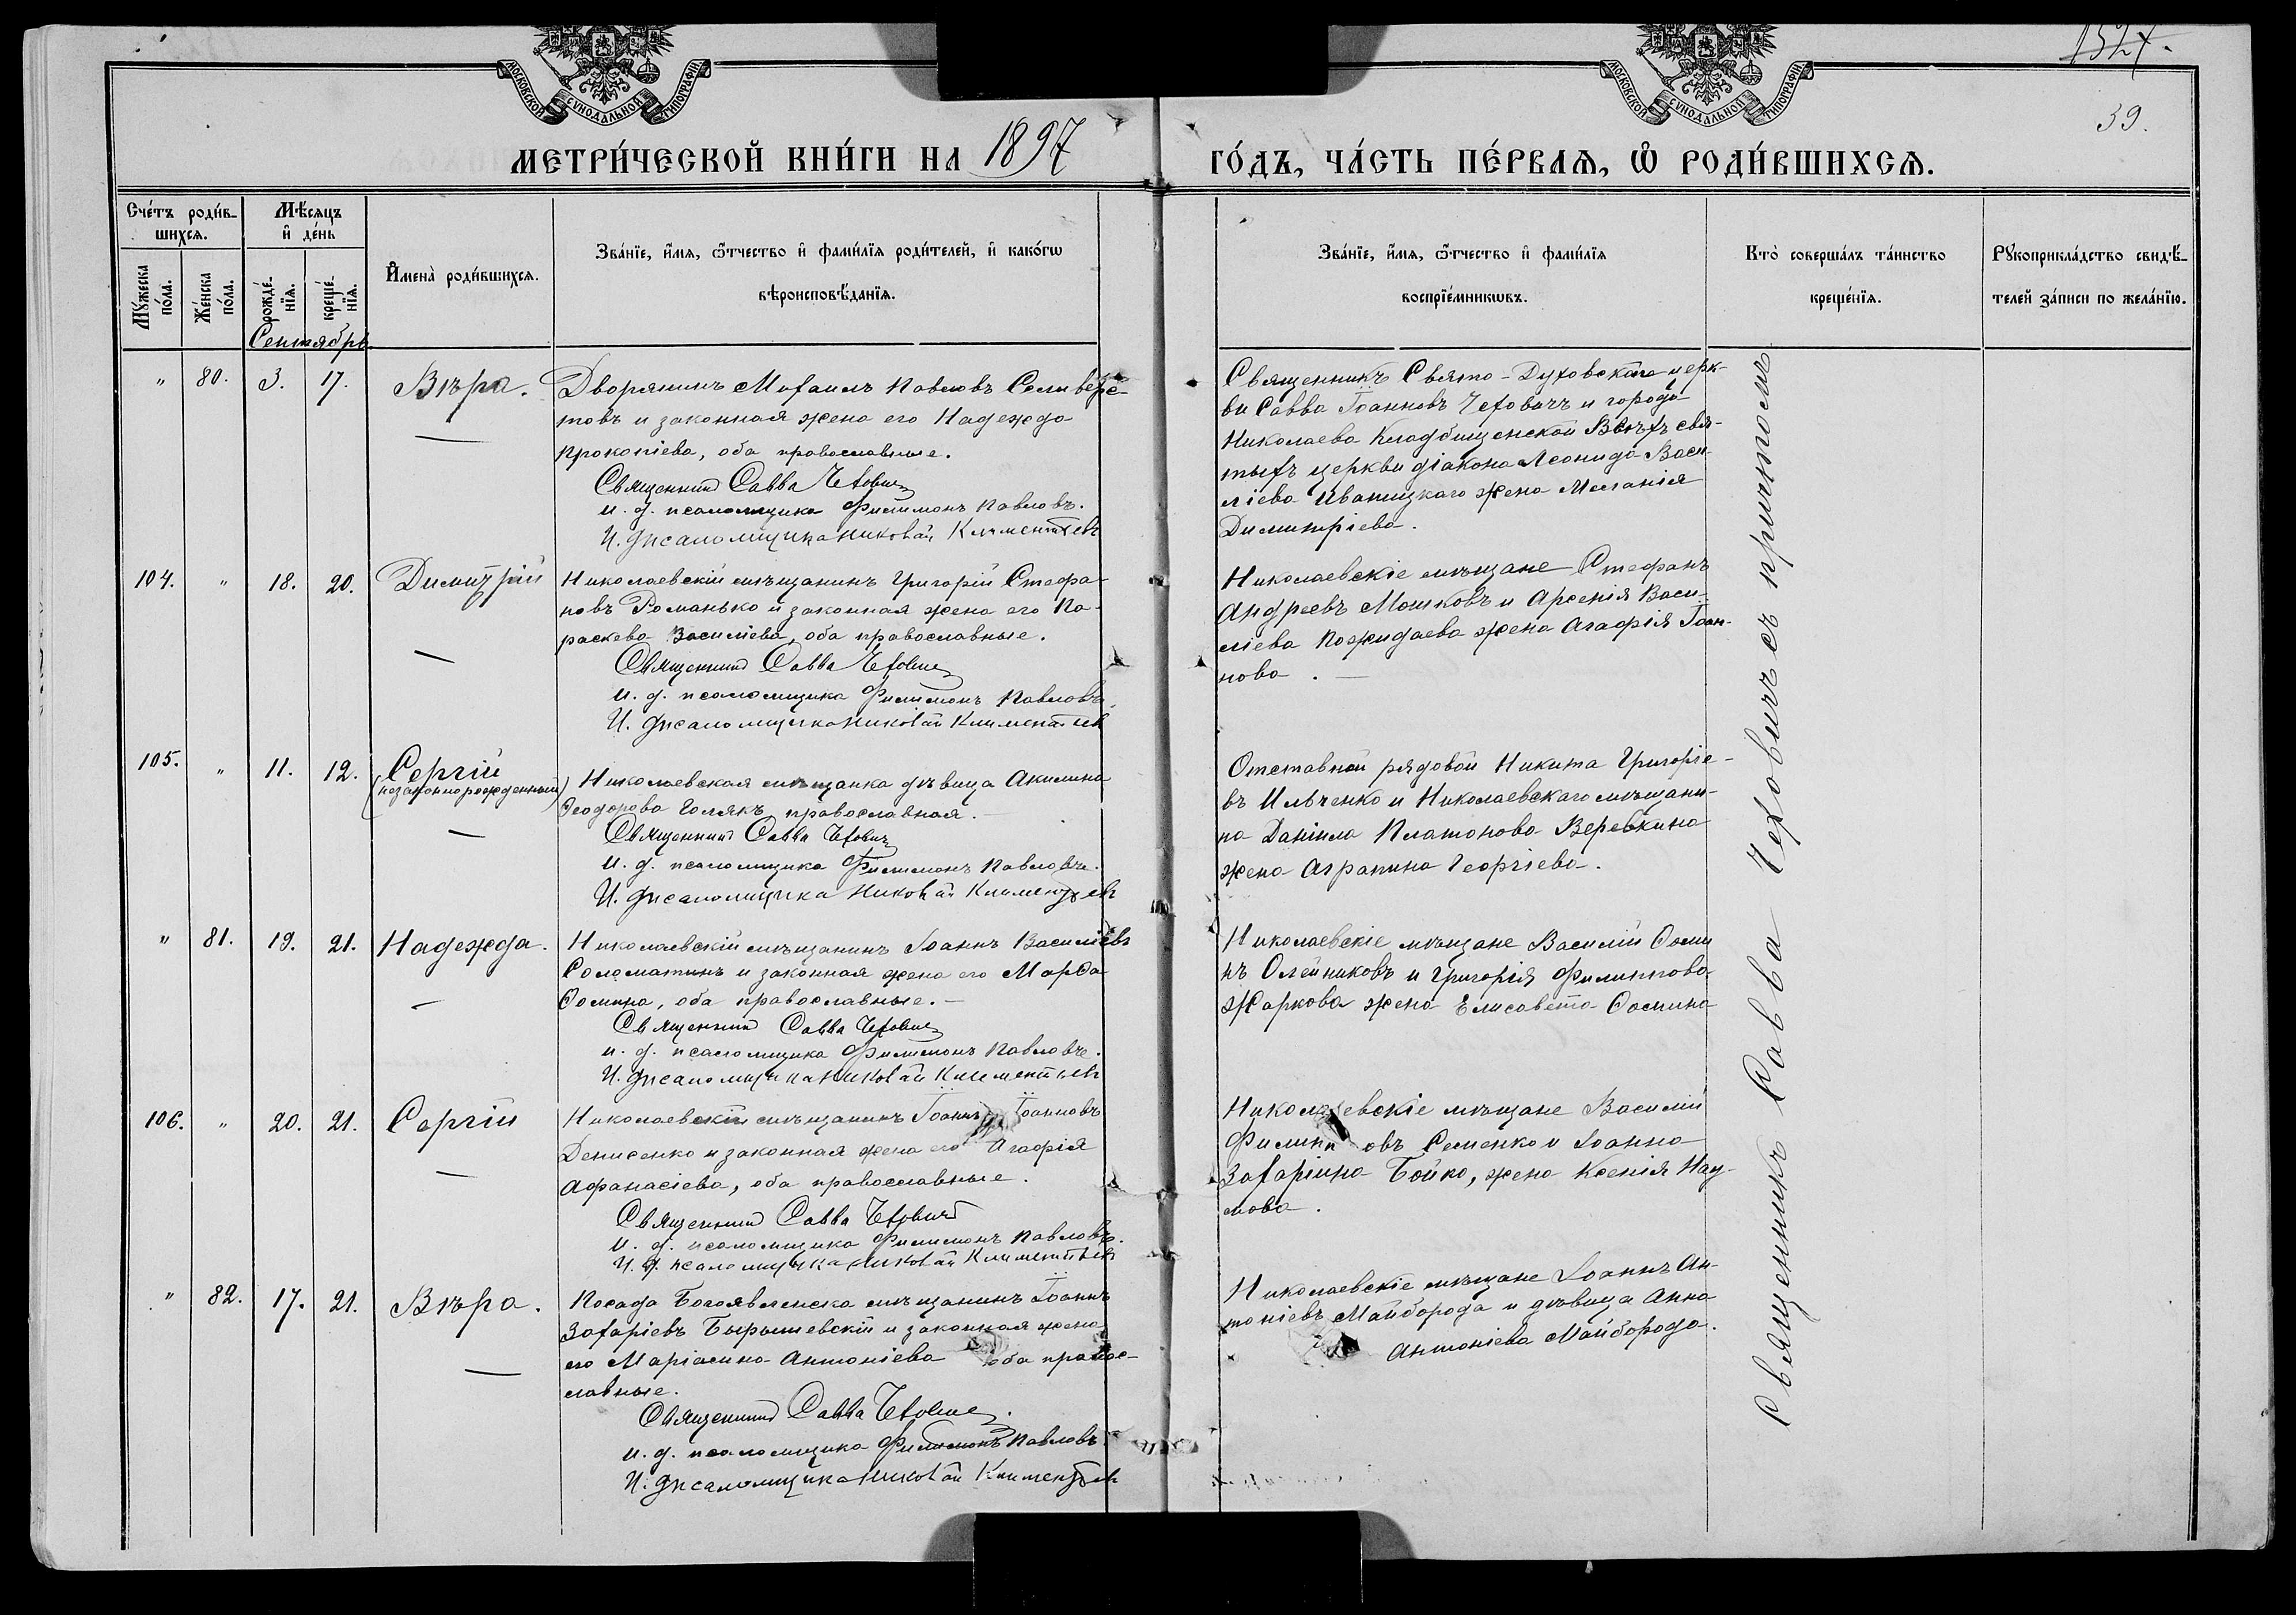 1524.
39.
МОСКОВСКОЙ СУНОДАЛЬНОЙ ТИПОГРАФІИ
МОСКОВСКОЙ СУНОДАЛЬНОЙ ТИПОГРАФІИ
МЕТРИ́ЧЕСКОЙ КНИ́ГИ НА 1897 ГО́ДЪ, ЧА́СТЬ ПЕ́РВАѦ, Ѡ҆ РОДИ́ВШИХСѦ.
Сче́тъ роди́в-
шихсѧ.
Мѣ́сѧцъ
и҆ де́нь
Му́жеска
по́ла.
Же́нска
по́ла.
рожде́-
нїѧ.
креще́-
нїѧ.
И҆мена̀ роди́вшихсѧ.
Зва́нїе, и҆́мѧ, ѻ҆́тчество и҆ фами́лїѧ роди́телей, и҆ како́гѡ
вѣроисповѣ́данїѧ.
Зва́нїе, и҆́мѧ, ѻ҆́тчество и҆ фами́лїѧ
воспрїе́мникѡвъ.
Кто̀ соверша́лъ та́инство
креще́нїѧ.
Рꙋкоприкла́дство свидѣ́-
телей за́писи по жела́нїю.
Сентябрь
" 80. 3. 17. Вѣра.
Дворянинъ Михаилъ Павловъ Селиверс-
товъ и законная жена его Надежда
Прокопіева, оба православные.
Священникъ Савва Чехович
и. д. псаломщика Филимонъ Павловъ.
И. д псаломщика Николай Климентьевъ
Священникъ Свято-Духовской церк-
ви Савва Іоанновъ Чеховичъ и города
Николаева Кладбищенской Всѣхъ свя-
тыхъ церкви діакона Леонида Васи-
ліева Иваницкаго жена Меланія
Димитріева.
104. " 18. 20. Димитрій
Николаевскій мѣщанинъ Григорій Стефа-
новъ Романько и законная жена его Па-
раскева Василіева, оба православные.
Священникъ Савва Чехович
и. д. псаломщика Филимонъ Павловъ.
И. д псаломщика Николай Климентьев
Николаевскіе мѣщане Стефанъ
Андреевъ Мошковъ и Арсенія Васи-
ліева Пожидаева жена Агафія Іоан-
нова.
105. " 11. 12. Сергій
(незаконнорожденный)
Николаевская мѣщанка дѣвица Акилина
Ѳеодорова Голякъ, православная.
Священникъ Савва Чехович
и. д. псаломщика Филимонъ Павловъ.
И. д псаломщика Николай Климентьев
Отставной рядовой Никита Григоріе-
въ Ильченко и Николаевскаго мѣщани-
на Даніила Платонова Веревкина
жена Агрипина Георгіева.
" 81. 19. 21. Надежда.
Николаевскій мѣщанинъ Іоаннъ Василіевъ
Соломатинъ и законная жена его Марѳа
Ѳомина, оба православные.
Священникъ Савва Чехович
и. д. псаломщика Филимонъ Павловъ.
И. д псаломщика Николай Климентьев
Николаевскіе мѣщане Василій Ѳоми
нъ Олейниковъ и Григорія Филиппова
Жаркова жена Елисавета Ѳомина
106. " 20. 21. Сергій
Николаевскій мѣщанинъ Іоаннъ Іоанновъ
Денисенко и законная жена его Агафія
Афанасіева, оба православные.
Священникъ Савва Чехович
и. д. псаломщика Филимонъ Павловъ.
И. д. псаломщика Николай Климентьев
Николаевскіе мѣщане Василій
Филипповъ Семенко и Іоанна
Захаріина Бойко, жена Ксенія Нау-
мова.
" 82. 17. 21. Вѣра.
Посада Богоявленска мѣщанинъ Іоаннъ
Захаріевъ Бырышевскій и законная жена
его Маріамна Антоніева оба правос-
лавные.
Священникъ Савва Чехович.
и. д. псаломщика Филимонъ Павловъ.
И. д псаломщика Николай Климентьев
Николаевскіе мѣщане Іоаннъ Ан-
тоніевъ Майборода и дѣвица Анна
Антоніева Майборода.
Священникъ Савва Чеховичъ съ причтомъ